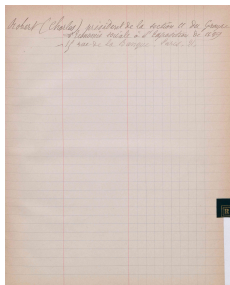 Robert (Charles) président de la section II du Groupe
d'économie sociale à l'Exposition de 1889
15 rue de la Banque. Paris.